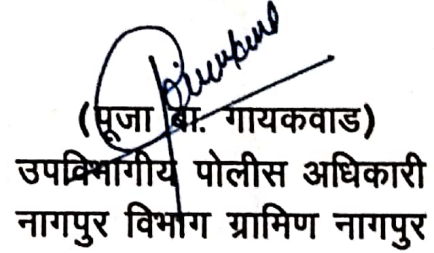 (पूजा बा. गायकवाड)
उपविभागीय पोलीस अधिकारी
नागपुर विभाग ग्रामिण नागपुर